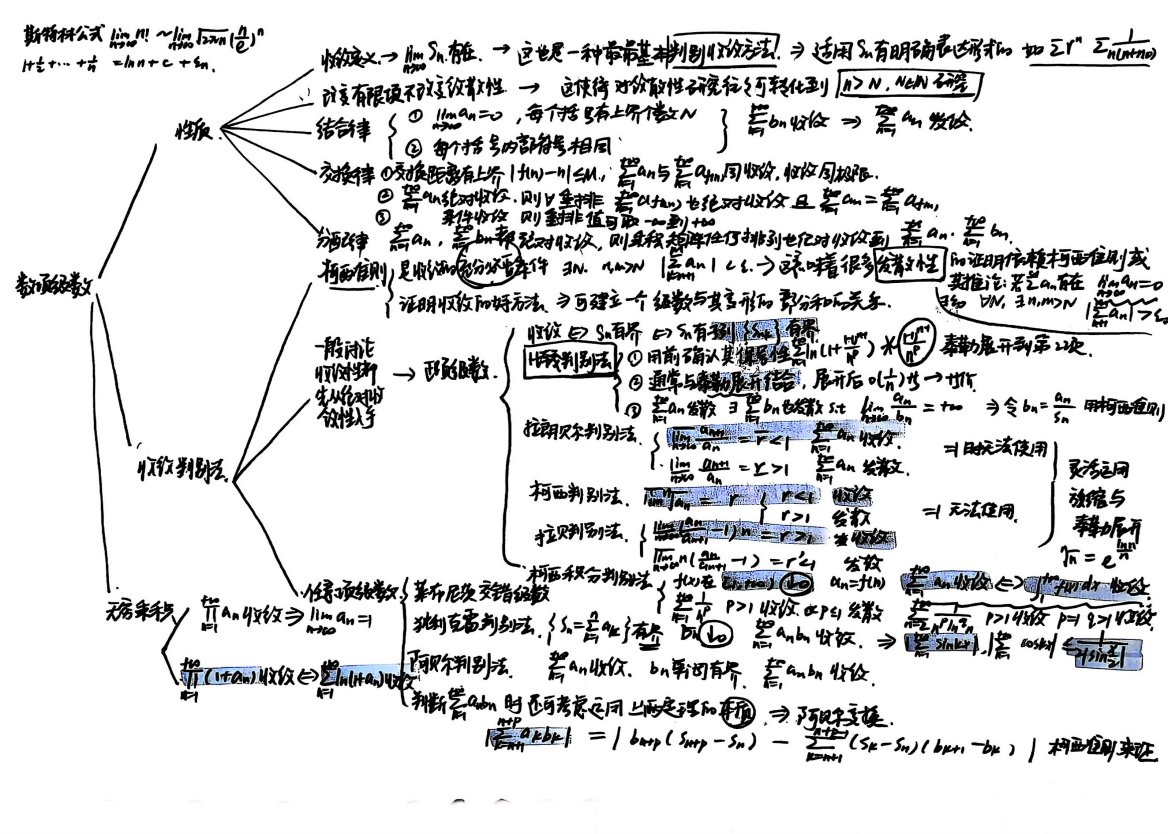 斯特林公式 lim_{n→∞} n! ~ lim_{n→∞} √(2πn) (n/e)^n
1+1/2+…+1/n = ln n + c + εn
数项级数
性质
收敛定义 → lim_{n→∞} Sn 存在. → 这也是一种最最基本判别收敛方法. ⇒ 适用 Sn 有明确表达形式的 如 Σr^n Σ1/(n(n+1))
改变有限项不改变敛散性 → 这使得对敛散性研究往往可转化到 n>N, N∈ℕ 研究
结合律 { ① lim_{n→∞} an=0, 每个括号有上界个数N
② 每个括号内部符号相同
} Σ_{n=1}^{+∞} bn 收敛 ⇒ Σ_{n=1}^{+∞} an 收敛.
交换律 ①交换距离有上界 |f(n)-n|≤M, Σ_{n=1}^{+∞} an 与 Σ_{n=1}^{+∞} a_{f(n)} 同收敛, 收敛同极限.
② Σ_{n=1}^{+∞} an 绝对收敛. 则∀重排 Σ_{n=1}^{+∞} a_{f(n)} 也绝对收敛 且 Σ_{n=1}^{+∞} an = Σ_{n=1}^{+∞} a_{f(n)}
③ 条件收敛 则重排值可取 -∞到+∞
分配律 Σ_{n=1}^{+∞} an, Σ_{n=1}^{+∞} bn 都绝对收敛, 则乘积矩阵任何排列也绝对收敛到 Σ_{n=1}^{+∞} an · Σ_{n=1}^{+∞} bn.
柯西准则 { 是收敛的充分必要条件 ∃N. n,m>N |Σ an| < ε. → 意味着很多发散性的证明依赖柯西准则或
其推论: 若 Σ an 存在 lim_{n→∞} an=0
证明收敛的好方法. ⇒ 可建立一个级数与其变形的部分和的关系.
∃ε0 ∀N, ∃n,m>N |Σ an| > ε0
收敛判别法
一般讨论
收敛性都
先从绝对收
敛性入手
→ 正项级数
收敛 ⇔ Sn有界 ⇔ Sn有子列 {Snk} 有界
比较判别法 { ① 用前确认其保号性 Σ_{n=1}^{+∞} ln(1+(-1)^{n+1}/n^p) * (-1)^{n+1}/n^p 泰勒展开到第2项.
② 通常与泰勒展开结合, 展开后
③ Σ_{n=1}^{+∞} an 发散 ∃ Σ_{n=1}^{+∞} bn 也发散 s.t lim_{n→∞} an/bn = +∞ ⇒ 令 bn = an/Sn 用柯西准则
达朗贝尔判别法. { lim_{n→∞} a_{n+1}/an = r<1 Σ_{n=1}^{+∞} an 收敛.
lim_{n→∞} a_{n+1}/an = r>1 Σ_{n=1}^{+∞} an 发散.
=1时无法使用
柯西判别法. lim ⁿ√an = r { r<1 收敛
r>1 发散
=1 无法使用.
灵活运用
放缩与
泰勒展开
ⁿ√n = e^{ln n/n}
拉贝判别法. { lim_{n→∞} (an/a_{n+1} -1)n = r>1 收敛
lim_{n→∞} n(an/a_{n+1} -1) = r'<1 发散
柯西积分判别法 { f(x)在[1,+∞) ↓0 an=f(n) Σ_{n=1}^{+∞} an 收敛 ⇔ ∫_1^{+∞} f(x)dx 收敛.
Σ_{n=1}^{+∞} 1/n^p p>1 收敛 0<p≤1 发散 Σ 1/(n^p ln^q n) p>1收敛 p=1 q>1 收敛.
任意项级数
莱布尼茨交错级数
狄利克雷判别法. {Sn=Σ_{k=1}^{n} ak} 有界 bn↓0 Σ_{n=1}^{+∞} anbn 收敛. ⇒ |Σ sinkx|, |Σ coskx| ≤ 1/|sin(x/2)|
阿贝尔判别法. Σ_{n=1}^{+∞} an 收敛. bn 单调有界. Σ_{n=1}^{+∞} anbn 收敛.
判断 Σ_{n=1}^{+∞} anbn 时还可考虑运用上两定理的本质. ⇒ 阿贝尔变换.
|Σ_{k=n+1}^{n+p} akbk| = |b_{n+p}(S_{n+p}-Sn) - Σ_{k=n+1}^{n+p-1} (Sk-Sn)(b_{k+1}-bk)| 柯西准则来证
无穷乘积
Π_{n=1}^{+∞} an 收敛 ⇒ lim_{n→∞} an=1
Π_{n=1}^{+∞} (1+an) 收敛 ⇔ Σ_{n=1}^{+∞} ln(1+an) 收敛